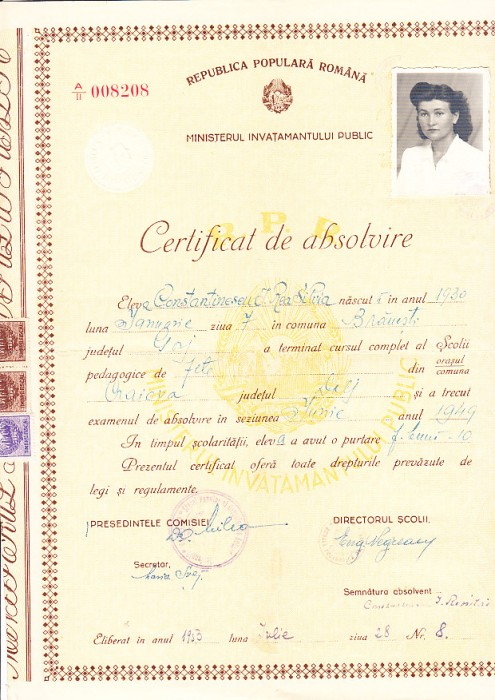 A/II 008208
REPUBLICA POPULARĂ ROMÂNĂ
MINISTERUL INVATAMANTULUI PUBLIC
R.P.R.
Certificat de absolvire
Eleva Constantinescu I. Rea Silvia născut ă în anul 1930
luna Ianuarie ziua 7 în comuna Brăești
județul Iași a terminat cursul complet al Școlii
pedagogice de fete din orașul comuna
Craiova județul Dolj și a trecut
examenul de absolvire în sesiunea Iunie anul 1949
In timpul școlarității, eleva a avut o purtare f. bună - 10
Prezentul certificat oferă toate drepturile prevăzute de
legi și regulamente.
MINISTERUL INVATAMANTULUI PUBLIC
PREȘEDINTELE COMISIEI
DIRECTORUL ȘCOLII,
Secretar,
Semnătura absolvent
Eliberat în anul 1953 luna Iulie ziua 28 Nr. 8.